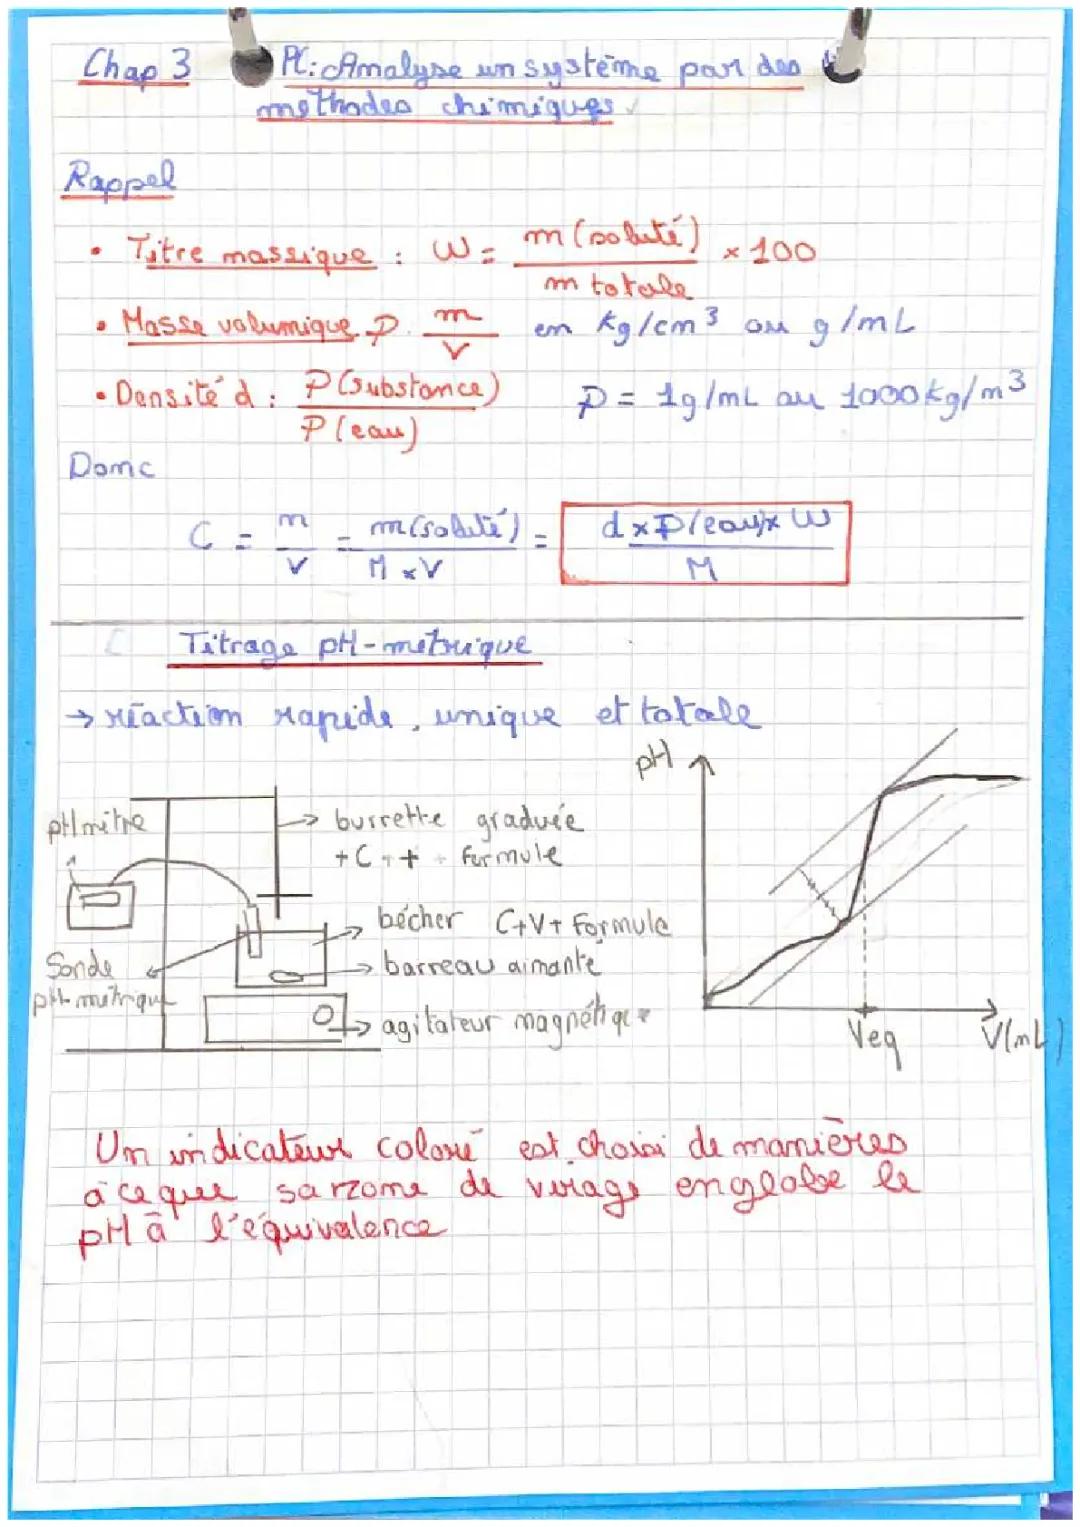 Chap 3 PC: Analyse un système par des
méthodes chimiques
Rappel
• Titre massique : W = m (soluté) / m totale × 100
• Masse volumique ρ. m / V en kg/cm³ ou g/mL
• Densité d : ρ (substance) / ρ (eau) ρ = 1g/mL ou 1000kg/m³
Donc
C = n / V = m(soluté) / M × V = d × ρ(eau) × W / M
Titrage pH-métrique
→ réaction rapide, unique et totale
pH
pHmètre
→ burrette graduée
+ C + + formule
→ bécher C+V+ Formule
→ barreau aimanté
Sonde
pH-métrique
→ agitateur magnétique
Veq
V(mL)
Un indicateur coloré est choisi de manières
à ce que sa zone de virage englobe le
pH à l'équivalence